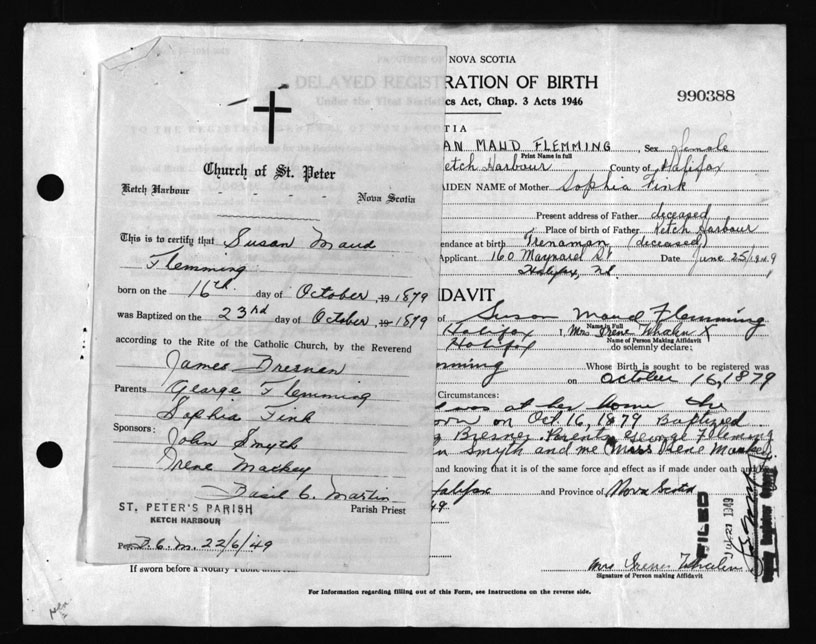 PROVINCE OF NOVA SCOTIA
DELAYED REGISTRATION OF BIRTH
Under the Vital Statistics Act, Chap. 3 Acts 1946
990388
Church of St. Peter
Ketch Harbour - - - - Nova Scotia
This is to certify that Susan Maud
Flemming
born on the 16th day of October, 19 1879
was Baptized on the 23rd day of October, 19 1879
according to the Rite of the Catholic Church, by the Reverend
James Bresnan
Parents George Flemming
Sophia Fink
Sponsors: John Smyth
Irene Mackey
Basil C. Martin
Parish Priest
ST. PETER'S PARISH
KETCH HARBOUR
Per B. C. M. 22/6/49
If sworn before a Notary Public
OTIA
AN MAUD FLEMMING, Sex female
Print Name in full
etch Harbour County of Halifax
AIDEN NAME of Mother Sophia Fink
Present address of Father deceased
Place of birth of Father Ketch Harbour
endance at birth Trenaman (deceased)
Applicant 160 Maynard St Date June 25/1949
Halifax, N.S.
IDAVIT
of Susan Maud Flemming
Name in Full
Halifax I, Mrs Irene Whalen X
Name of Person Making Affidavit
Halifax do solemnly declare:
mming Whose Birth is sought to be registered was
on October 16, 1879
Circumstances:
was at her home the
orn on Oct. 16, 1879 Baptized
Bresnen Parents George Fleming
n Smyth and me (Miss Irene Mackey)
and knowing that it is of the same force and effect as if made under oath and
Halifax and Province of Nova Scotia
49
FILED
1949
Mrs Irene Whalen
Signature of Person making Affidavit
For Information regarding filling out of this Form, see Instructions on the reverse side.